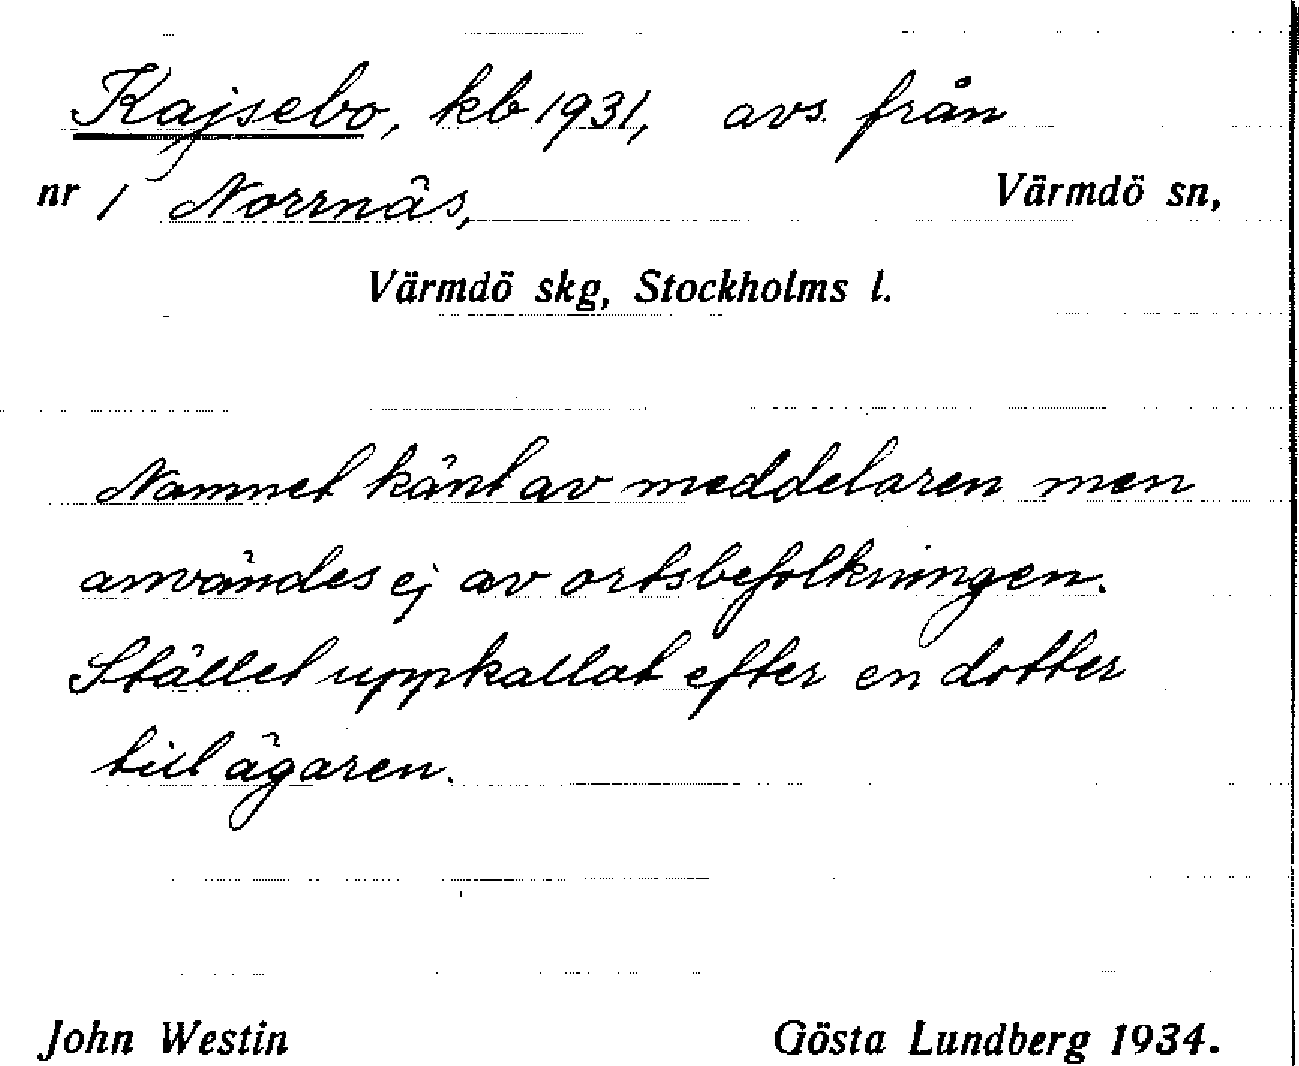 Kajsebo, kb 1931, avs. från
nr 1 Norrnäs, Värmdö sn,
Värmdö skg, Stockholms l.
Namnet känt av meddelaren men
användes ej av ortsbefolkningen.
Stället uppkallat efter en dotter
till ägaren.
John Westin Gösta Lundberg 1934.